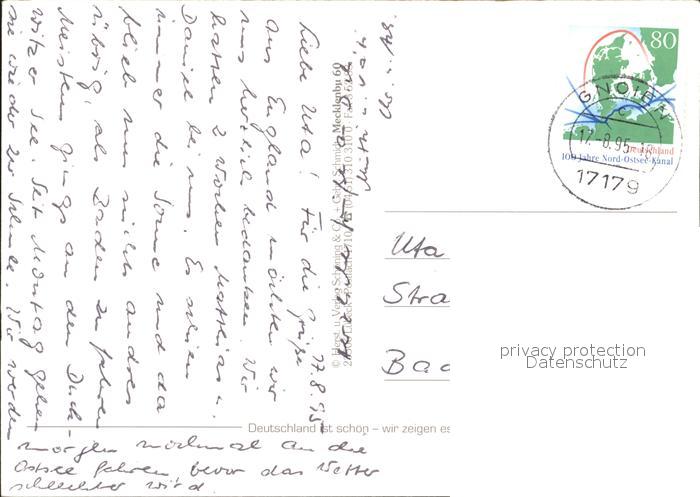 17.8.95
Liebe Uta! Für die Grüße
aus England möchten wir
uns herzlich bedanken. Wir
hatten 2 Wochen Matthias u.
Daniel bei uns. Es schien
immer die Sonne und da
blieb uns nichts anderes
übrig, als Baden zu fahren.
Meistens gings an den Duck-
witzer See. Seit Montag gehen
sie wieder zur Schule. Wir werden
morgen nochmal an die
Ostsee fahren, bevor das Wetter
schlechter wird.
Deutschland ist schön – wir zeigen es
80
Deutschland
100 Jahre Nord-Ostsee-Kanal
GNOIEN
c
17.-8.95
17179
Uta
Stra
Bad
privacy protection
Datenschutz